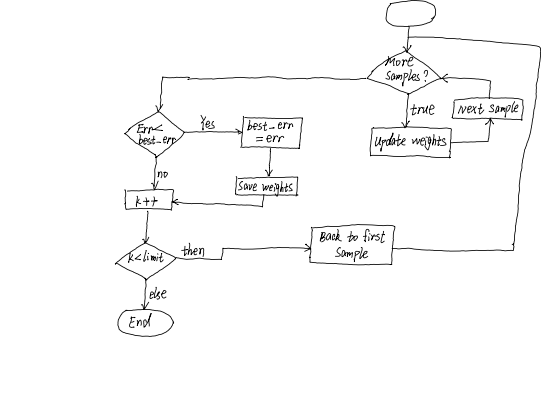 More
Samples?
true
Next sample
Update weights
Err<
best_err
Yes
best_err
=err
no
Save weights
k++
k<limit
then
Back to first
Sample
else
End